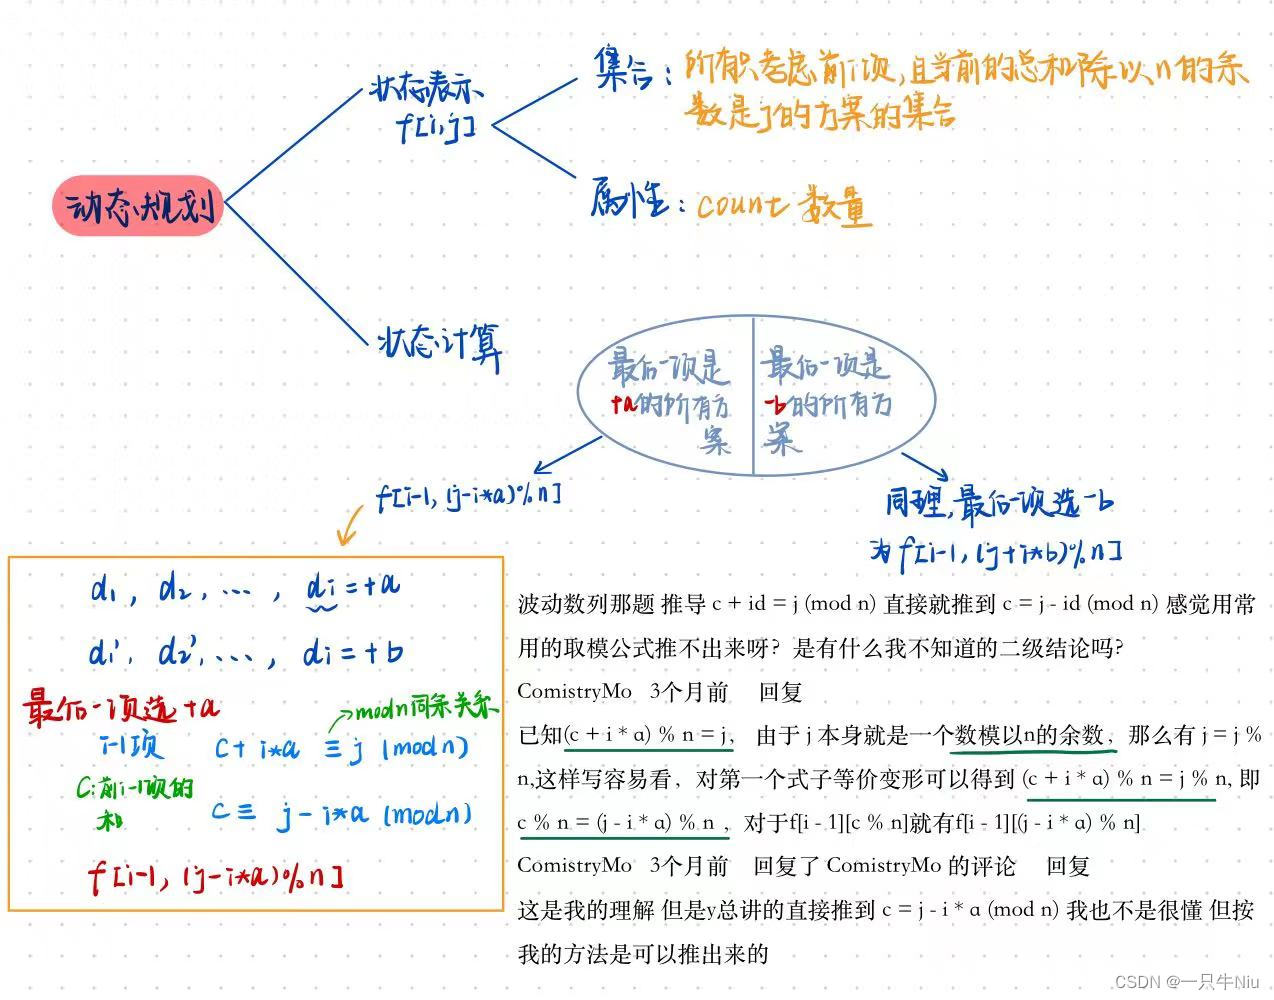 动态规划
状态表示
f[i,j]
集合：所有只考虑前i项，且当前的总和除以n的余
数是j的方案的集合
属性：count 数量
状态计算
最后一项是
+a的所有方
案
最后一项是
-b的所有方
案
f[i-1, (j-i*a)%n]
同理，最后一项选-b
为f[i-1, (j+i*b)%n]
d1, d2, ..., di=+a
d1', d2', ..., di=+b
最后一项选+a
modn同余关系
i-1项 C+i*a ≡ j (modn)
C:前i-1项的
和
C ≡ j-i*a (modn)
f[i-1, (j-i*a)%n]
波动数列那题 推导 c + id = j (mod n) 直接就推到 c = j - id (mod n) 感觉用常
用的取模公式推不出来呀？是有什么我不知道的二级结论吗？
ComistryMo 3个月前 回复
已知(c + i * a) % n = j, 由于 j 本身就是一个数模以n的余数，那么有 j = j %
n,这样写容易看，对第一个式子等价变形可以得到 (c + i * a) % n = j % n, 即
c % n = (j - i * a) % n ，对于f[i - 1][c % n]就有f[i - 1][(j - i * a) % n]
ComistryMo 3个月前 回复了 ComistryMo 的评论 回复
这是我的理解 但是y总讲的直接推到 c = j - i * a (mod n) 我也不是很懂 但按
我的方法是可以推出来的
CSDN @一只牛Niu